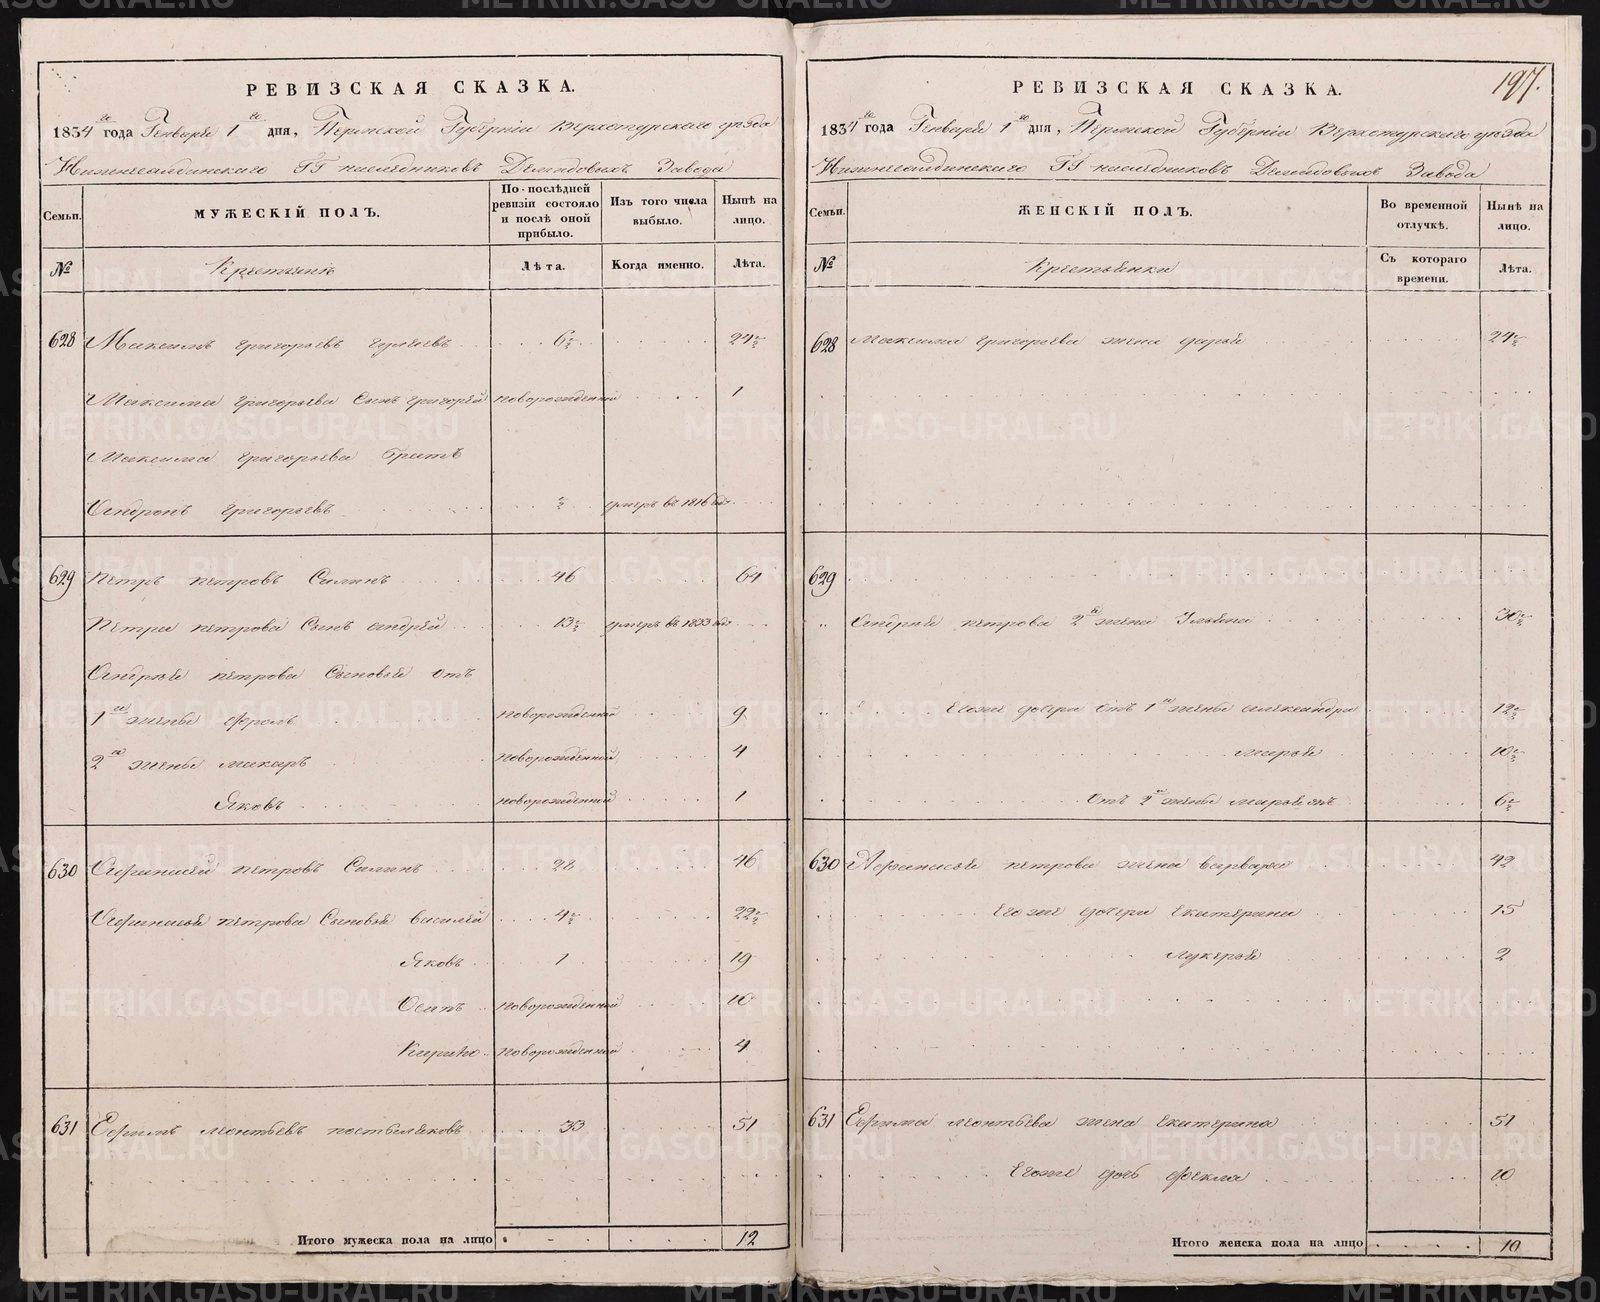 РЕВИЗСКАЯ СКАЗКА.
1834 го года Генваря 1 го дня, Пермской Губерніи Верхотурского уезда
Нижнесалдинского ГГ наследниковъ Демидовыхъ Завода
Семьи.
МУЖЕСКІЙ ПОЛЪ.
По послѣдней ревизіи состояло и послѣ оной прибыло.
Изъ того числа выбыло.
Нынѣ на лицо.
№
Крестьяне
Лѣта.
Когда именно.
Лѣта.
628 Максимъ григорьевъ 6½ 24½
Максима григорьева Сынъ григорей новорожденной 1
Максима григорьева братъ
Андронъ григорьевъ ½ умеръ въ 1816 году
629 Петръ петровъ Силинъ 46 64
Петра петрова Сынъ андрей 13½ умеръ въ 1833 году
Андрея петрова Сыновья отъ
1 ой жены фролъ новорожденной 9
2 ой жены макаръ новорожденной 4
Яковъ новорожденной 1
630 Афанасей петровъ Силинъ 28 46
Афанасья петрова Сыновья василей 4½ 22½
Яковъ 1 19
Осипъ новорожденной 10
Кирило новорожденной 4
631 Ефимъ леонтьевъ постыляковъ 33 51
Итого мужеска пола на лицо 12
197.
РЕВИЗСКАЯ СКАЗКА.
1834 го года Генваря 1 го дня, Пермской Губерніи Верхотурского уезда
Нижнесалдинского ГГ наследниковъ Демидовыхъ Завода
Семьи.
ЖЕНСКІЙ ПОЛЪ.
Во временной отлучкѣ.
Нынѣ на лицо.
№
Крестьянки
Съ котораго времени.
Лѣта.
628 Максима григорьева жена дарья 24½
629
Андрея петрова 2 я жена Ульяна 30½
Егоже дочери отъ 1 ой жены александра 12½
марья 10½
отъ 2 ой жены марья же 6½
630 Афанасья петрова жена варвара 42
Егоже дочери екатерина 15
лукерья 2
631 Ефима леонтьева жена екатерина 51
Егоже дочь фекла 10
Итого женска пола на лицо 10
METRIKI.GASO-URAL.RU